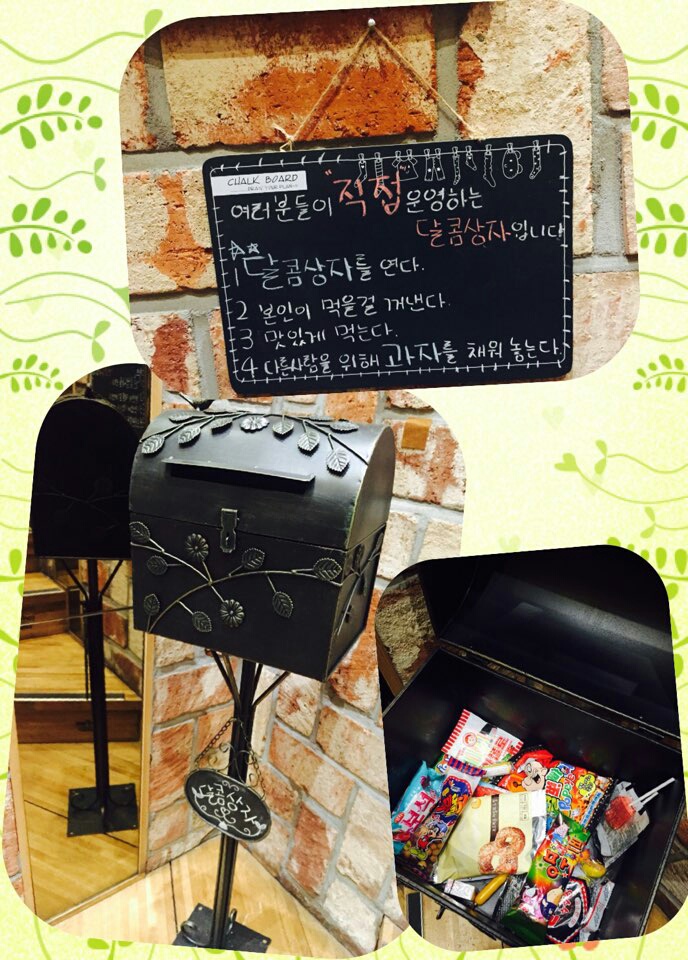 CHALK BOARD
여러분들이 "직접" 운영하는
달콤상자입니다
1 달콤상자를 연다.
2 본인이 먹을걸 꺼낸다.
3 맛있게 먹는다.
4 다른사람을 위해 과자를 채워 놓는다.
달콤상자